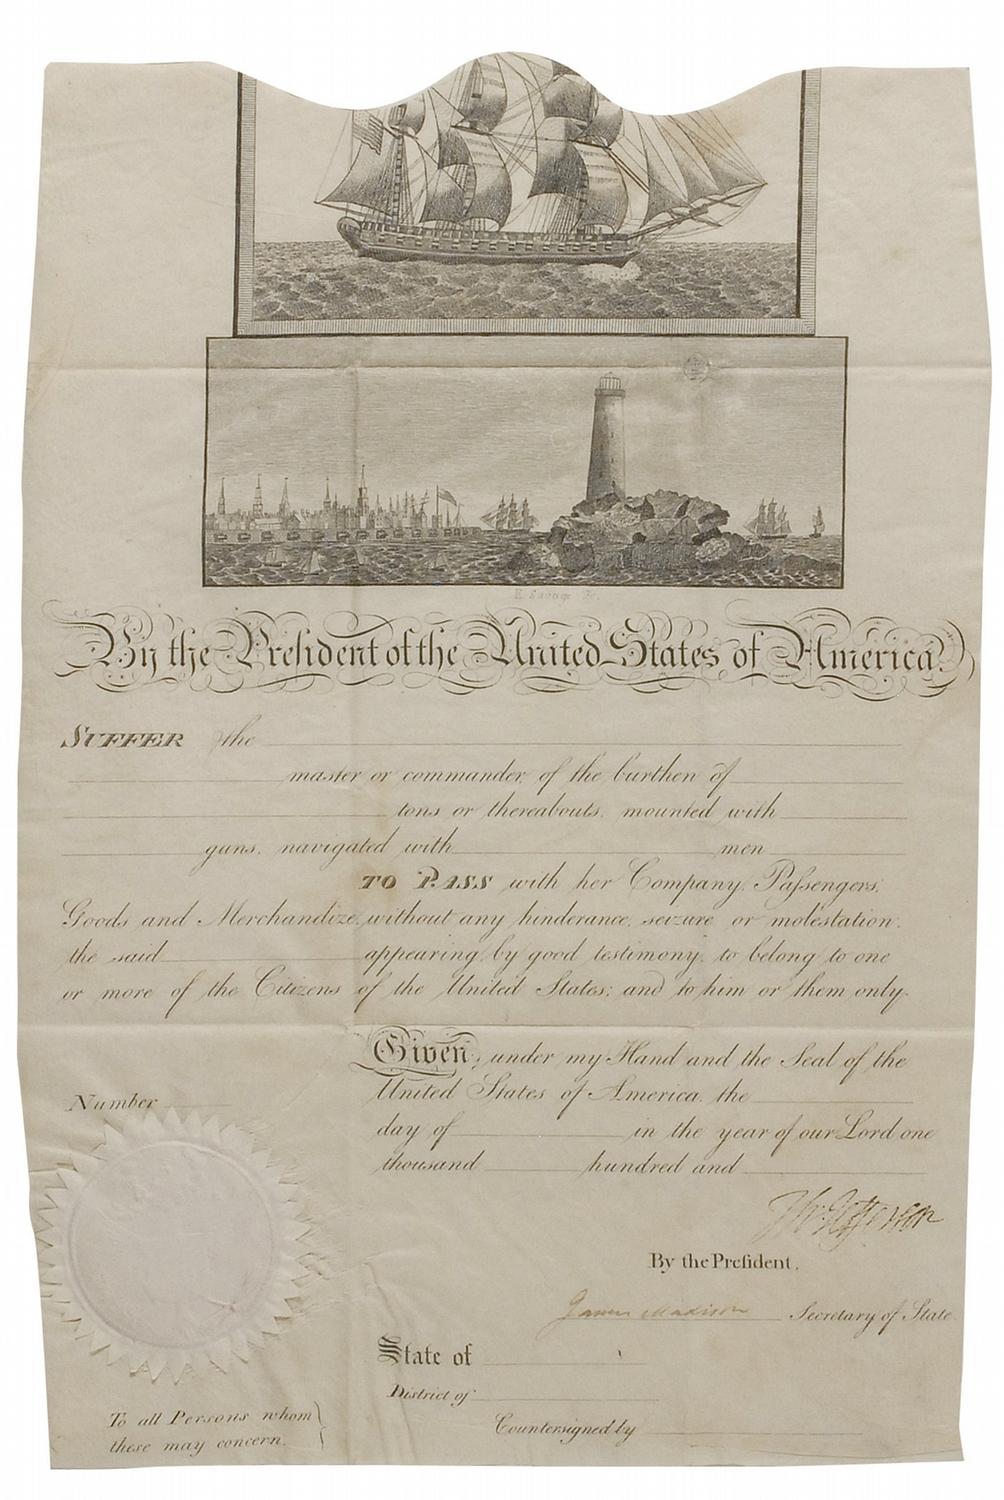 E. Savage Fc.
By the President of the United States of America.
SUFFER the
master or commander, of the burthen of
tons or thereabouts, mounted with
guns, navigated with men
TO PASS with her Company, Passengers,
Goods and Merchandize, without any hinderance, seizure or molestation,
the said appearing by good testimony, to belong to one
or more of the Citizens of the United States; and to him or them only.
Given, under my Hand and the Seal of the
United States of America, the
Number
day of in the year of our Lord one
thousand hundred and
Th Jefferson
By the President,
James Madison Secretary of State.
State of
District of
To all Persons whom
these may concern.
Countersigned by